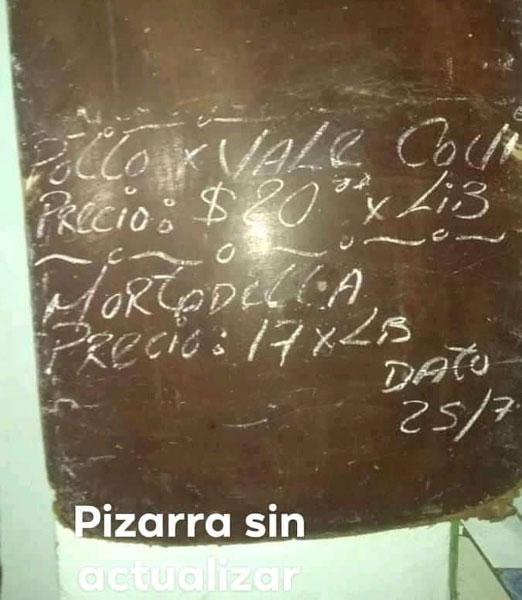 POLLO x VALE
PRECIO: $20.00 x LiB
MORTADELLA
PRECIO: 17 x LB
DATO
25/7
Pizarra sin
actualizar